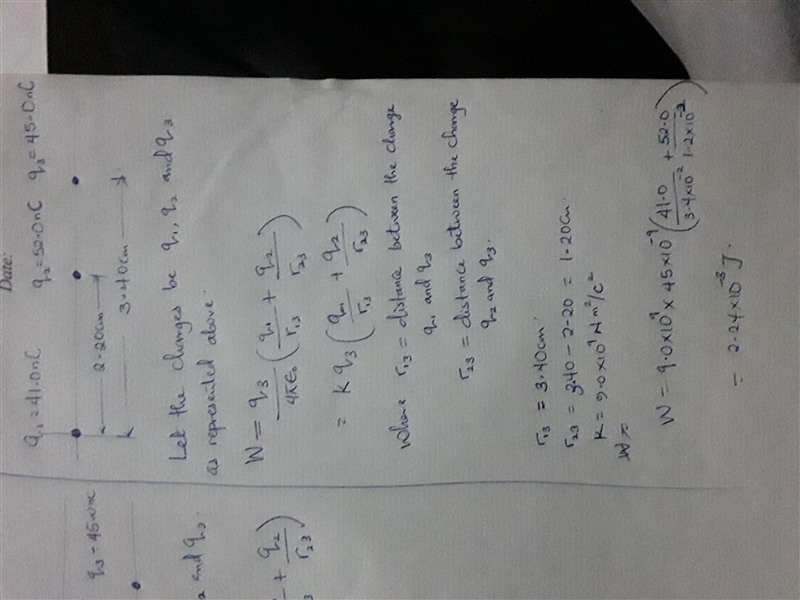 Date:
q₁ = 41.0nC q₂ = 52.0nC q₃ = 45.0nC
2.20cm
3.40cm
Let the charges be q₁, q₂ and q₃
as represented above.
W = q₃/4πε₀ (q₁/r₁₃ + q₂/r₂₃)
= K q₃ (q₁/r₁₃ + q₂/r₂₃)
where r₁₃ = distance between the charge
q₁ and q₃
r₂₃ = distance between the charge
q₂ and q₃.
r₁₃ = 3.40cm.
r₂₃ = 3.40 - 2.20 = 1.20cm.
K = 9.0x10⁹ Nm²/c²
W = 9.0x10⁹ x 45x10⁻⁹ (41.0/3.4x10⁻² + 52.0/1.2x10⁻²)
= 2.24x10⁻³ J.
q₃ - 45.0nc
2 and q₃.
+ q₂/r₂₃)